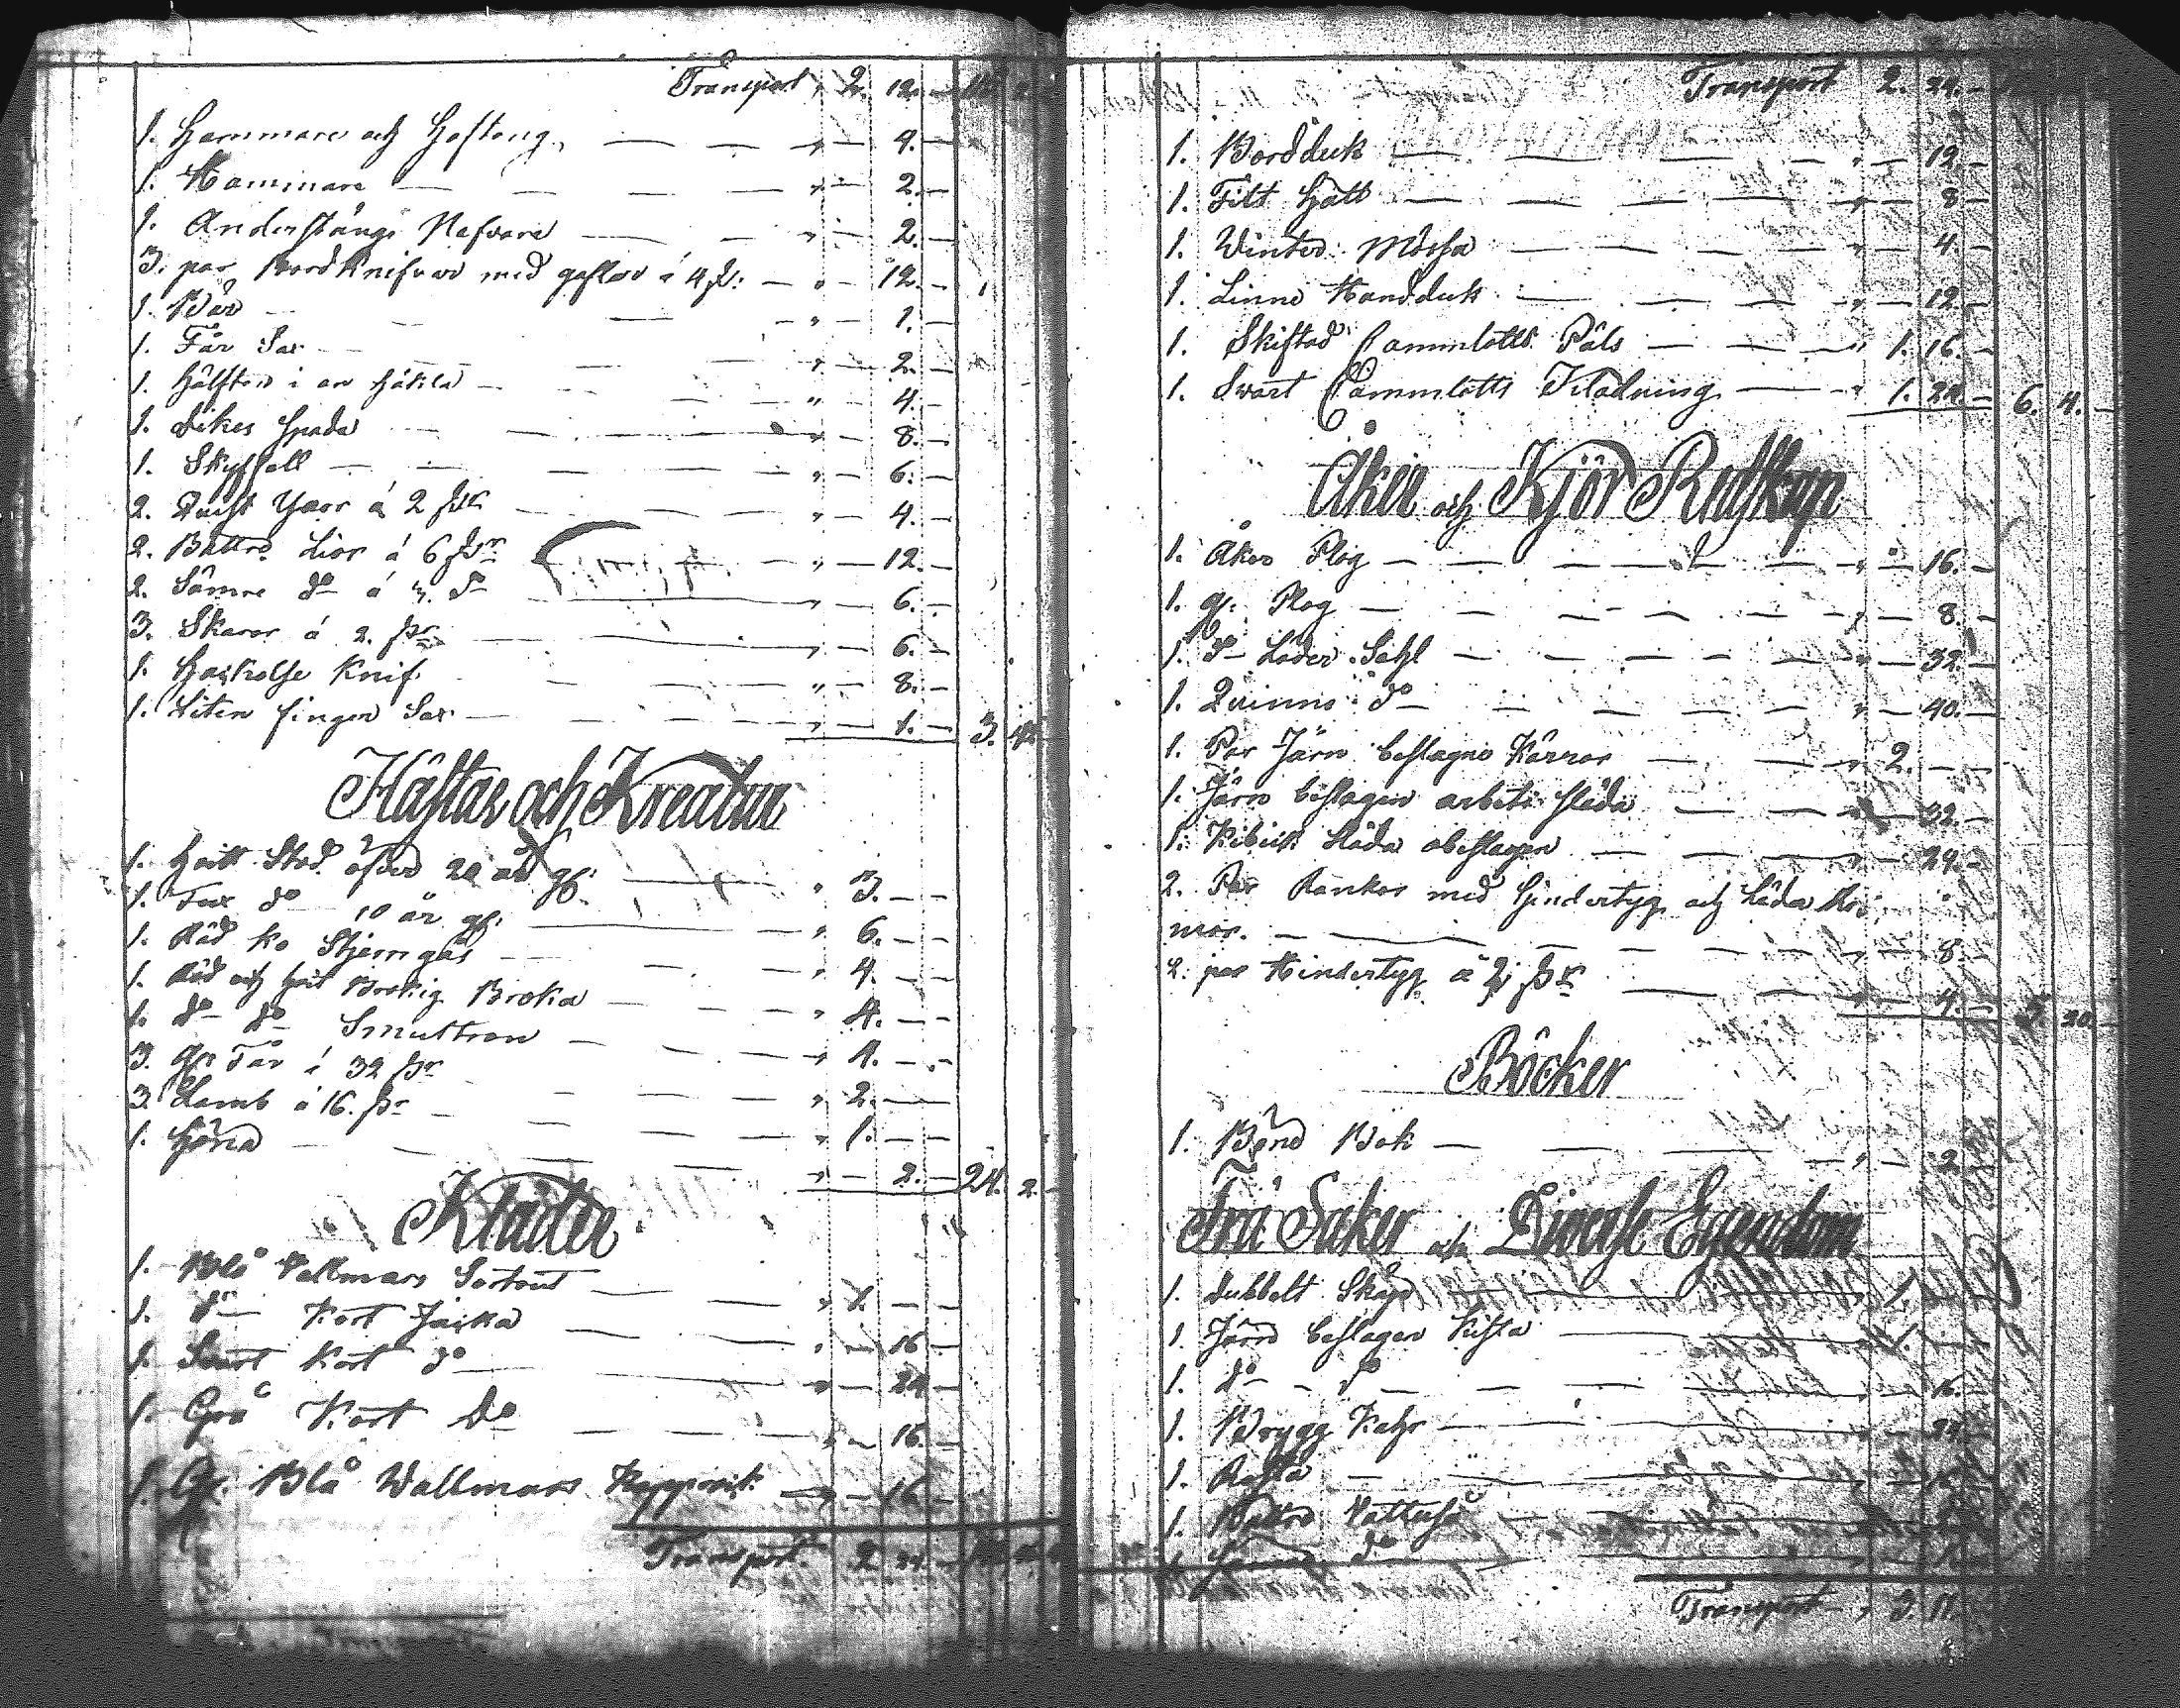 Transport " 2. 12. —
1. Hammare och Hoftong " — 4. —
1. Hammare " — 2. —
1. Anderstångs Nafvare " — 2. —
3. par Bordknifvar med gaflar á 4 sk: " — 12. —
1. " — 1. —
1. Får Sax " — 2. —
1. Hälften i en Häkla " — 4. —
1. Dikes Spada " — 8. —
1. Skyffell " — 6. —
2. á 2 sk " — 4. —
2. Bättre Liar á 6 skr " — 12. —
2. Sämre do á 3. do " — 6. —
3. Skäror á 2. skr " — 6. —
1. Knif " — 8. —
1. Liten finger Sax " — 1. — 3. 42
Hästar och Kreatur
1. Hvitt Stod öfver 20 år gl. " 3. — —
1. do 10 år gl. " 6. — —
1. Röd ko Stjerngås " 4. — —
1. Röd och hvit Brokig Broka " 4. — —
1. do do Smultron " 4. — —
3. Gl. Får á 32 skr " 2. — —
3. Lamb á 16. skr " 1. — —
1. Höna " — 2. — 24. 2. —
Kläder
1. Blå Vallmars Sortout " 1. — —
1. do Kort Jacka " — 16 —
1. Svart Kort do " — 24 —
1. Grå Kort do " — 16. —
1. Gl. Blå Wallmars " — 16 —
Transport. 2 24. —
Transport 2. 24. —
1. Bordduk " — 12 —
1. Filt Hatt " — 8 —
1. Winter Mössa " — 4. —
1. Linne Handduk " — 12. —
1. Skiftad Cammlotts Päls " 1. 16. —
1. Swart Cammlotts Klädning " 1. 24. — 6. 4. —
Åker och Kjör Redskap
1. Åker Plog " — 16. —
1. gl. Plog " — 8. —
1. do Läder Sahl " — 32. —
1. Quinns do " — 40. —
1. Par Järn beslagne Kärror " 2. — —
1. Järn beslagen arbets släda — 32. —
1. släda obeslagen " — 24. —
2. Par Rankor med Hindertyg och
mor. " — 8. —
2. par Hindertyg á 2 skr " — 4. — 5. 20. —
Böcker
1. Böne Bok " — 2 —
Trä Saker och Diverse Egendom
1. Dubbelt Skåp
1. Järn beslagen Kista
1. do do — 16. —
1. Brygg Kahr " — 24. —
1.
1. Bättre
1. do
Transport " 3. 11.